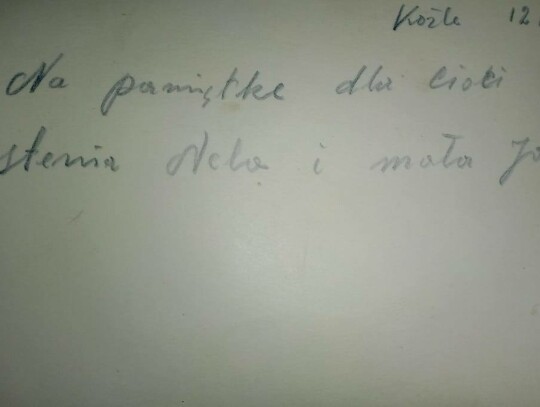 Koźle 12
Na pamiątke dla Cioci
stenia Nela i mała